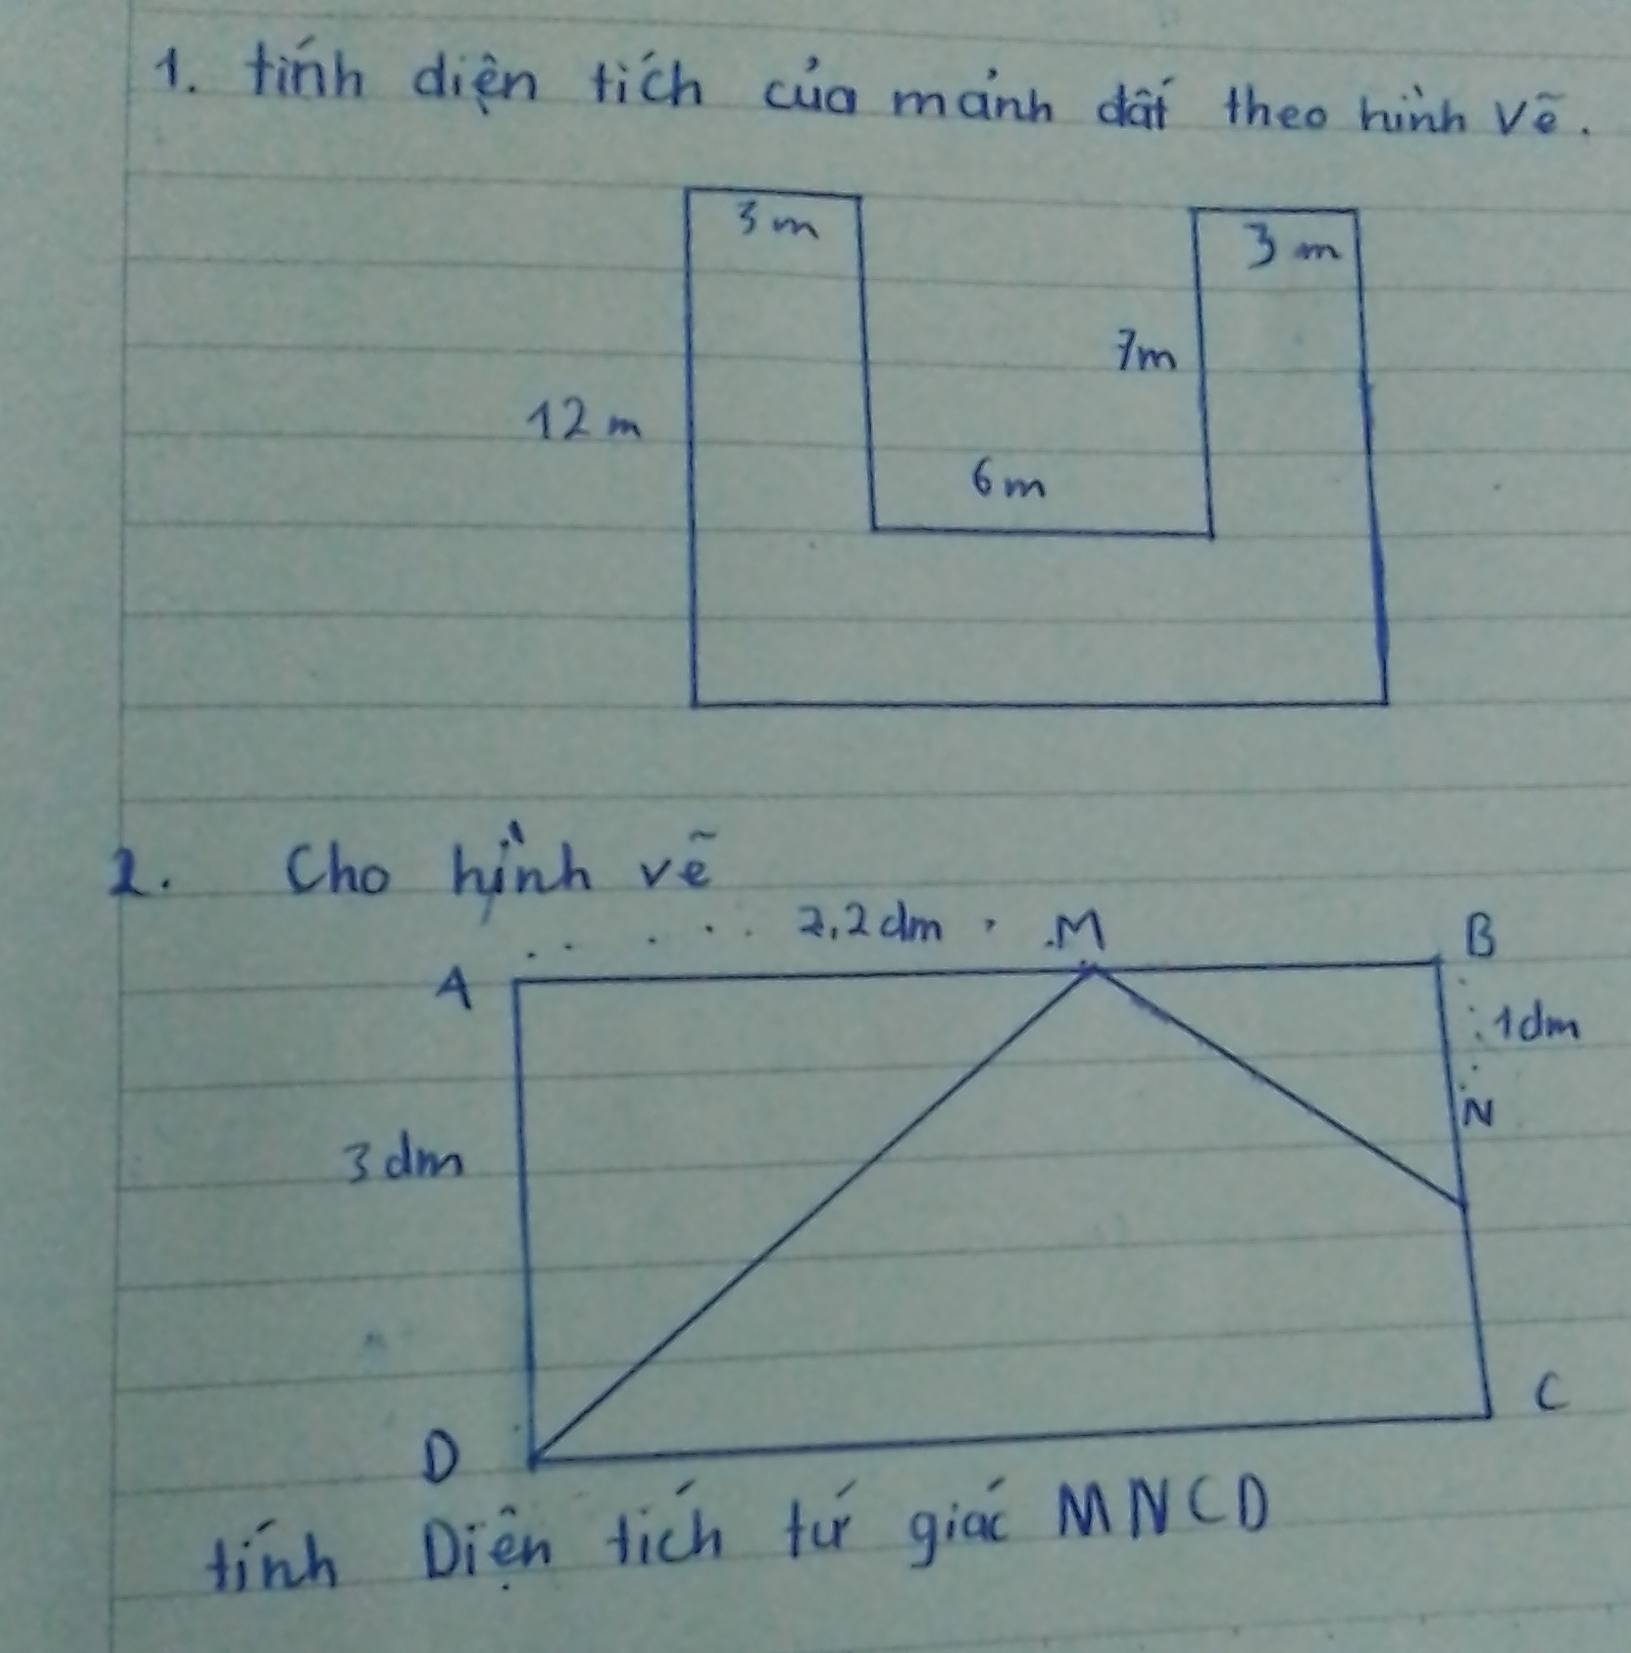 1. tính diện tích của mảnh đất theo hình vẽ.
3 m
3 m
7m
12 m
6m
2. Cho hình vẽ
2,2dm M B
A
1dm
N
3 dm
C
D
tính Diện tích tứ giác MNCD